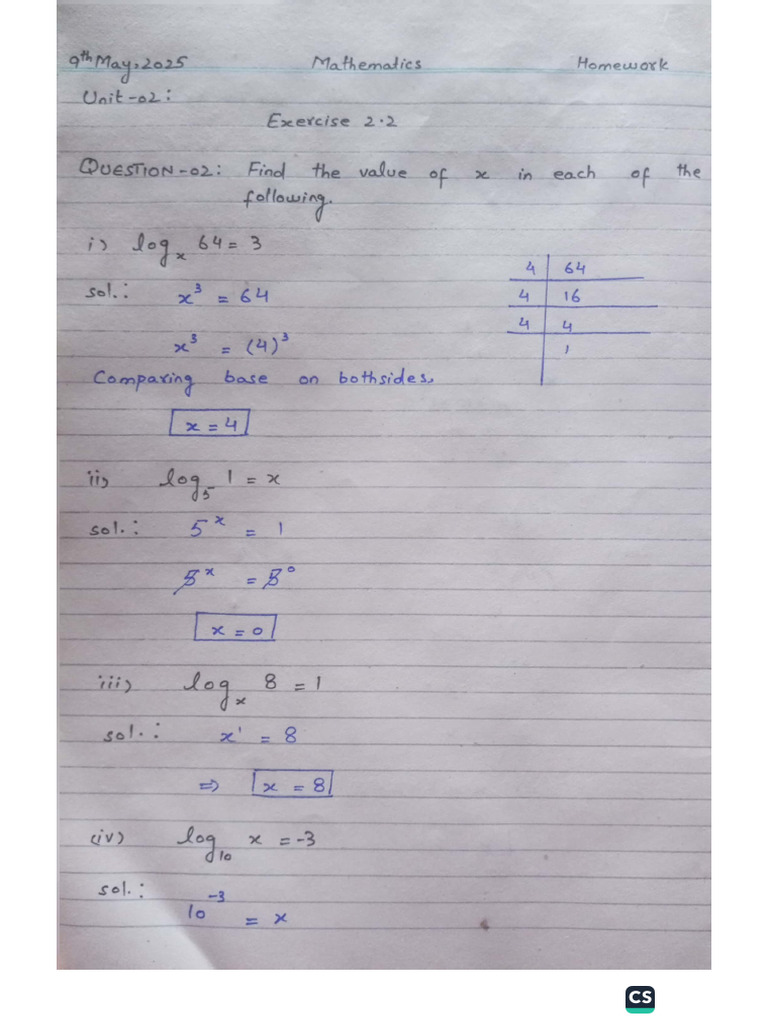 9th May, 2025 Mathematics Homework
Unit-02:
Exercise 2.2
QUESTION-02: Find the value of x in each of the
following.
i) logₓ 64 = 3
sol.: x³ = 64
x³ = (4)³
4 | 64
4 | 16
4 | 4
1
Comparing base on bothsides,
x = 4
ii) log₅ 1 = x
sol.: 5ˣ = 1
5ˣ = 5⁰
x = 0
iii) logₓ 8 = 1
sol.: x¹ = 8
⇒ x = 8
(iv) log₁₀ x = -3
sol.: 10⁻³ = x
CS